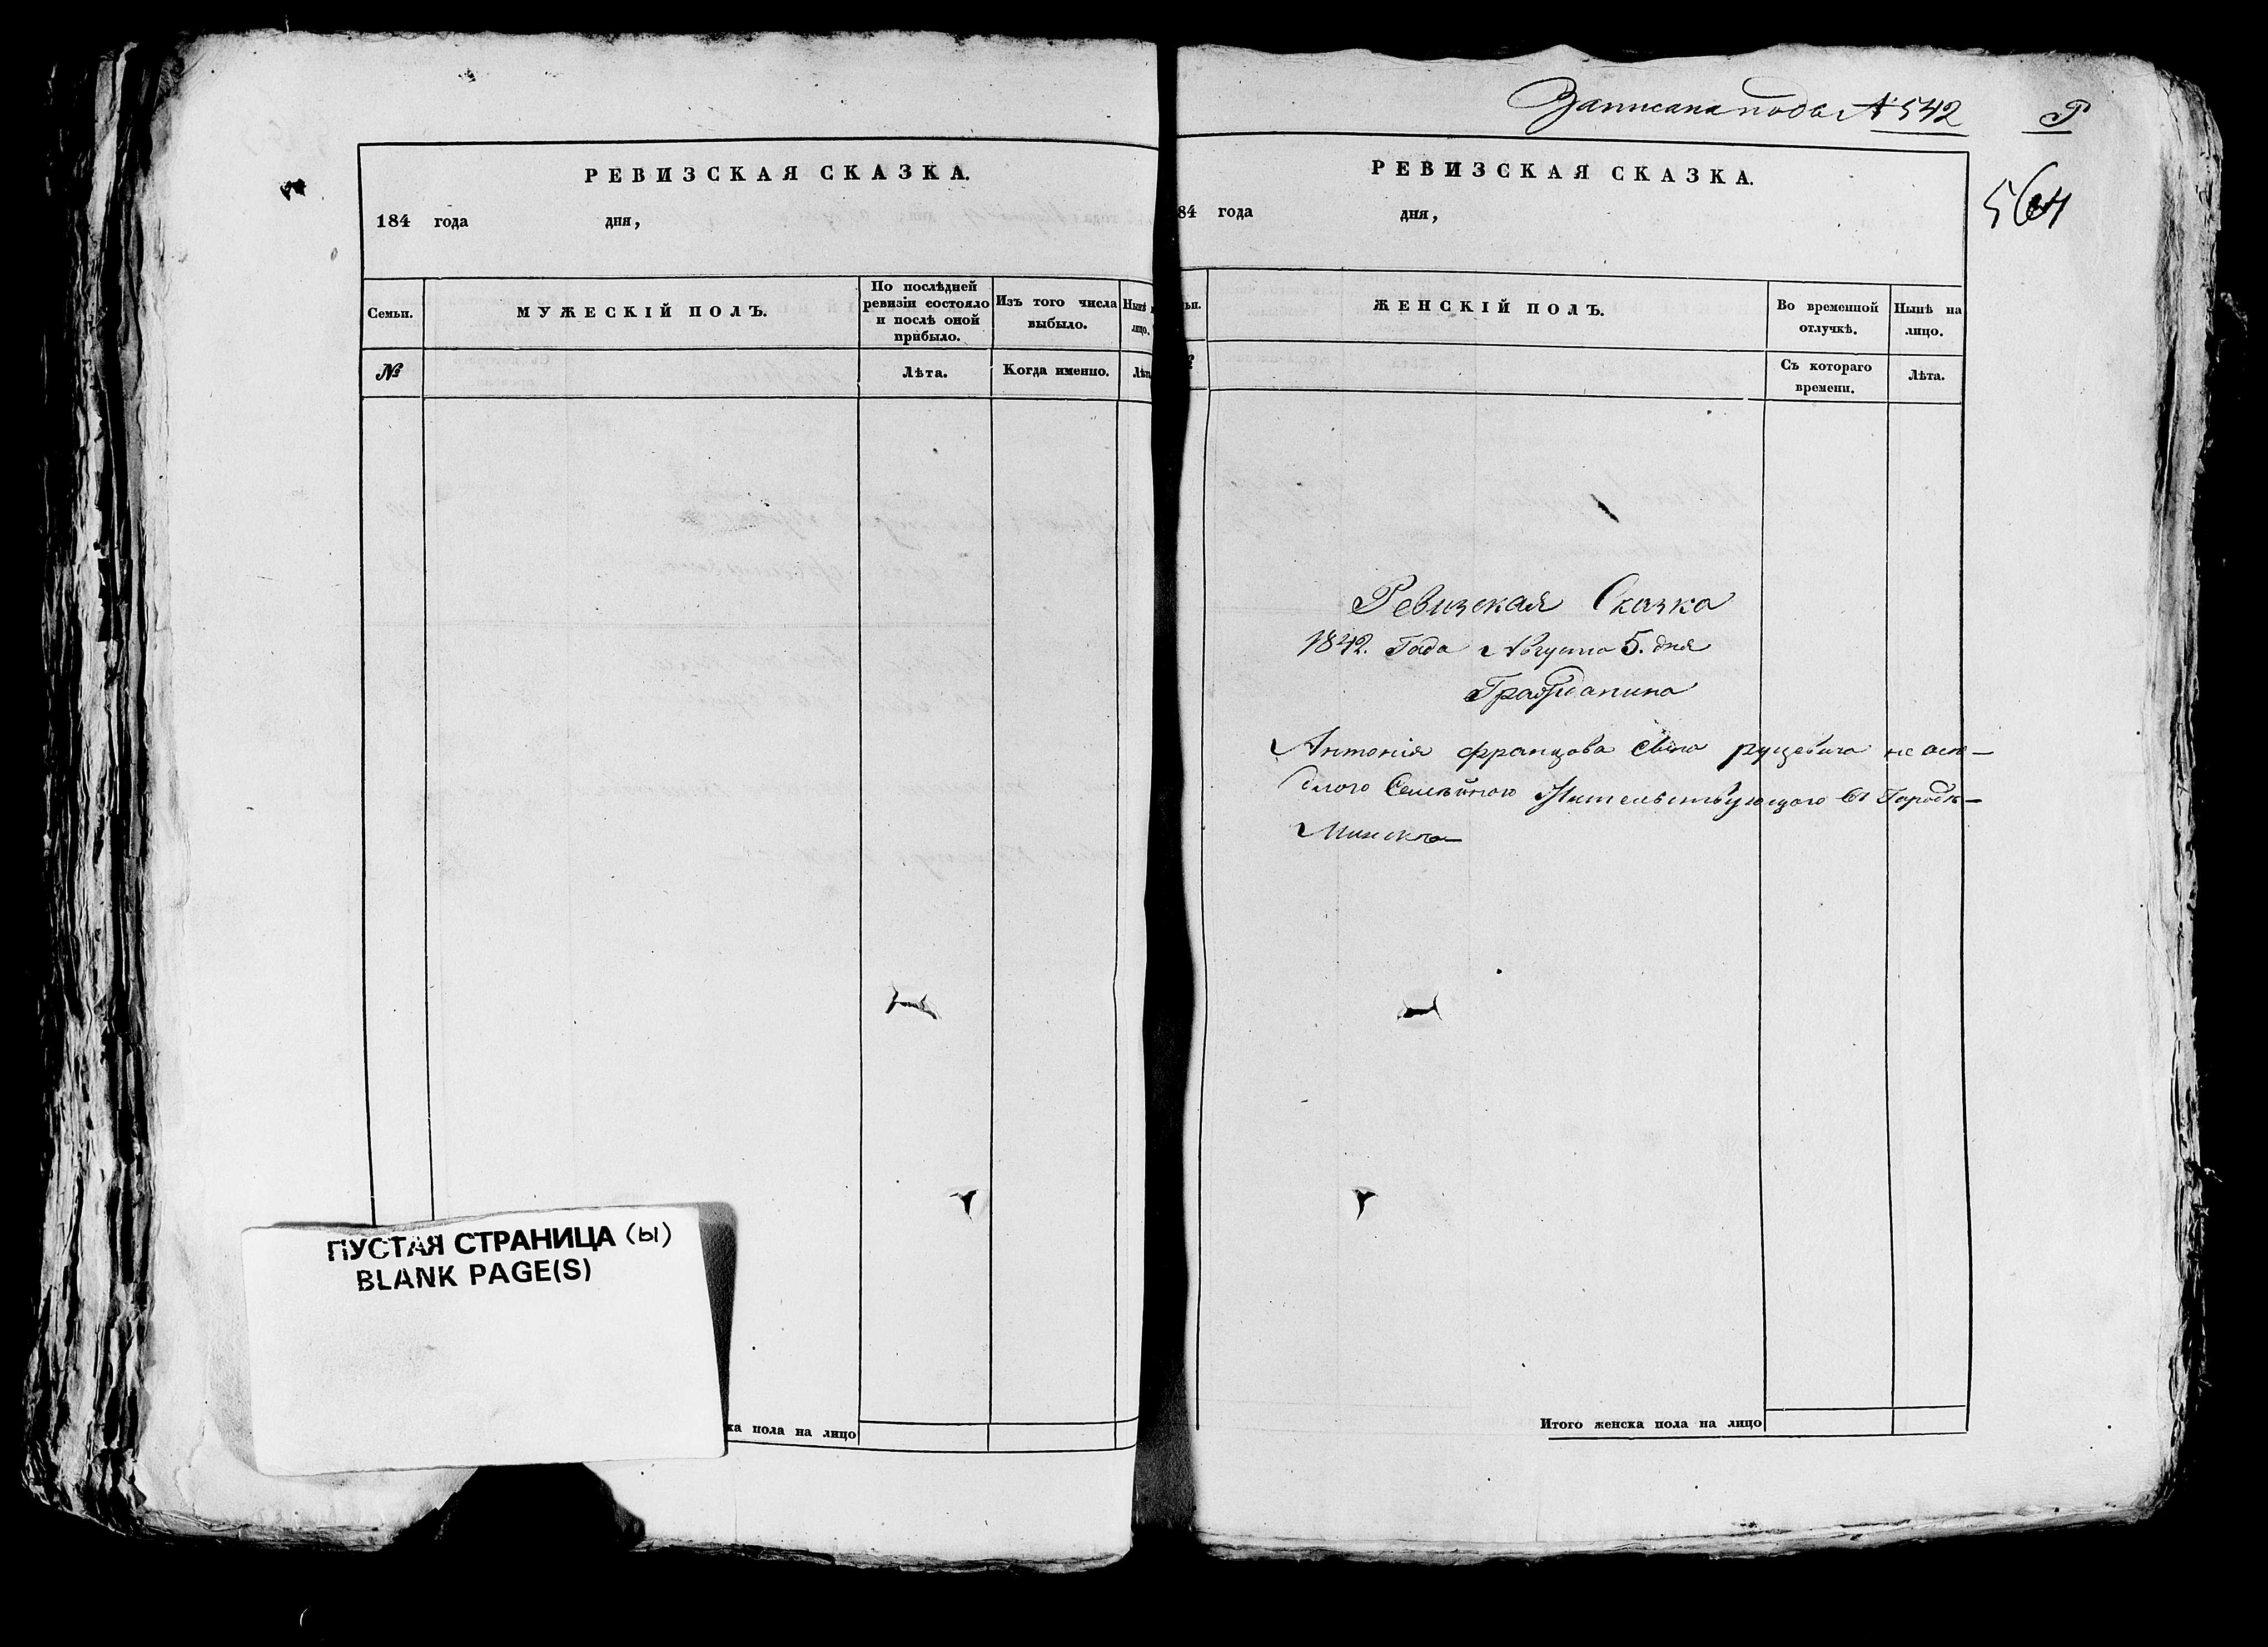 РЕВИЗСКАЯ СКАЗКА.
184 года дня,
Семьи.
МУЖЕСКІЙ ПОЛЪ.
По послѣдней
ревизіи состояло
и послѣ оной
прибыло.
Изъ того числа
выбыло.
Нынѣ
лицо.
№
Лѣта.
Когда именно.
Лѣт
ка пола на лицо
ПУСТАЯ СТРАНИЦА (ы)
BLANK PAGE(S)
Записана подъ № 542
Р
564
РЕВИЗСКАЯ СКАЗКА.
84 года дня,
ьи.
ЖЕНСКІЙ ПОЛЪ.
Во временной
отлучкѣ.
Нынѣ на
лицо.
Съ котораго
времени.
Лѣта.
Ревизская Сказка
1842. Года Августа 5. дня
Гражданина
Антонія францова сына руцевича не осѣ–
длого Семейного Жительствующаго въ Городѣ–
Минскѣ–
Итого женска пола на лицо